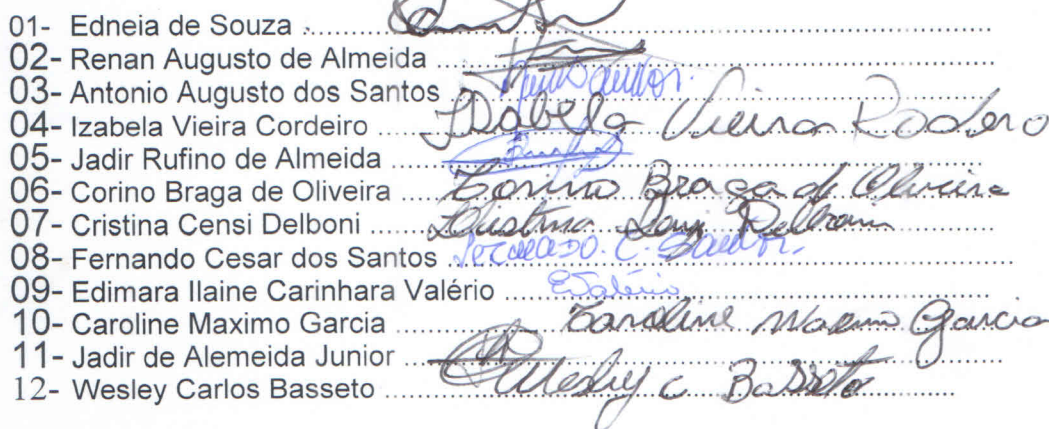 01- Edneia de Souza ............
02- Renan Augusto de Almeida ............
03- Antonio Augusto dos Santos
04- Izabela Vieira Cordeiro ............ Izabela Vieira Rodero
05- Jadir Rufino de Almeida ............
06- Corino Braga de Oliveira ............ Corino Braga de Oliveira
07- Cristina Censi Delboni ............ Cristina
08- Fernando Cesar dos Santos ... Fernando C. Santos.
09- Edimara Ilaine Carinhara Valério ............ EValério
10- Caroline Maximo Garcia ............ Caroline Maximo Garcia
11- Jadir de Alemeida Junior ............
12- Wesley Carlos Basseto ............ Wesley C Basseto